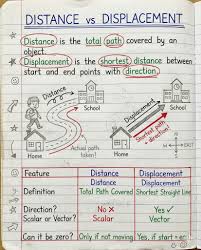 DISTANCE vs DISPLACEMENT
Distance is the total path covered by an
object.
Displacement is the shortest distance between
start and end points with direction.
Distance:
School
Home
Actual path
taken!
Displacement:
School
Displacement
Shortest path
+ direction!
Home
EAST
Feature Distance Displacement
Distance Displacement
Definition Total Path Covered Shortest Straight Line
Direction? No × Yes ✓
Scalar or Vector? Scalar Vector
Can it be zero? Only if not moving Yes, if start = end